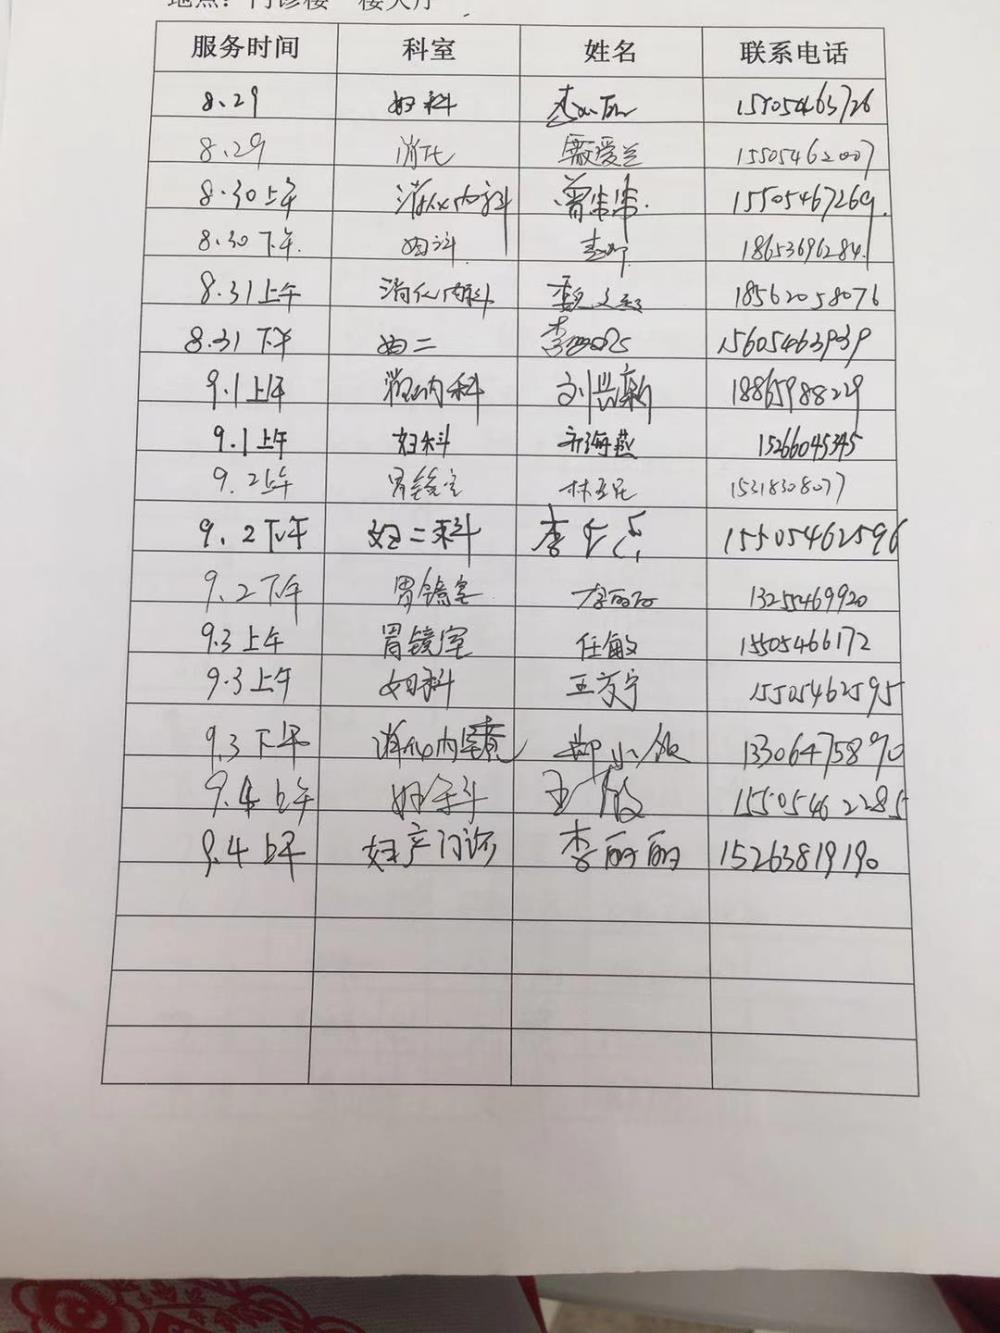 地点：门诊楼一楼大厅
服务时间 科室 姓名 联系电话
8.29 妇科 15505463726
8.29 消化 15505462007
8.30上午 消化内科 曾朱朱 15505467269
8.30下午 妇科 18653696284
8.31上午 消化内科 18562058076
8.31下午 妇二 15605463939
9.1上午 消化内科 刘兴新 18865988229
9.1上午 妇科 齐海燕 15266045345
9.2上午 胃镜室 15318308077
9.2下午 妇二科 李 15505462596
9.2下午 胃镜室 李丽丽 13255469920
9.3上午 胃镜室 任敏 15505466172
9.3上午 妇科 王方宁 15505462595
9.3下午 消化内镜 郭小波 13306475890
9.4上午 妇产科 王敏 15505462285
9.4上午 妇产门诊 李丽丽 15263819190